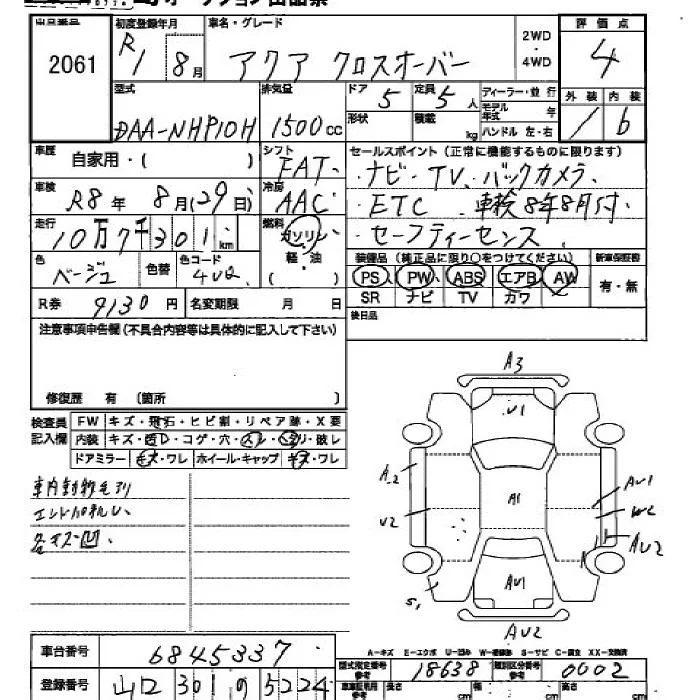 出品番号 2061
初度登録年月 R1 8月
車名・グレード アクア クロスオーバー
2WD・4WD
評価点 4
外装 / 内装 b
型式 DAA-NHP10H
排気量 1500cc
ドア 5
定員 5人
形状
積載 kg
ディーラー・並行
モデル年式 年
ハンドル 左・右
車歴 自家用・( )
シフト FAT
セールスポイント(正常に機能するものに限ります)
ナビ・TV、バックカメラ、
ETC 車検8年8月付
セーフティーセンス
車検 R8年 8月(29日)
冷房 AAC
走行 10万7千301km
燃料 ガソリン 軽・油 ( )
色 ベージュ
色替
色コード
装備品(純正品に限り○をつけてください)
PS PW ABS エアB AW
SR ナビ TV カワ
新車保証書 有・無
R券 9130円
名変期限 月 日
後日品
注意事項申告欄(不具合内容等は具体的に記入して下さい)
修復歴 有 (箇所 )
検査員記入欄
FW キズ・飛石・ヒビ割・リペア跡・X要
内装 キズ・ コゲ・穴・ 破レ
ドアミラー キズ・ワレ ホイール・キャップ キズ・ワレ
A3
U1
A2
U2
A1
AU1
W2
AU2
AU1
S1
AU2
A-キズ E-エクボ U-凹み W-補修跡 S-サビ C-腐食 XX-交換済
車台番号 6845337
型式指定番号参考 18638
類別区分番号参考 0002
登録番号 山口 301 の 5224
長さ cm 幅 cm 高さ cm